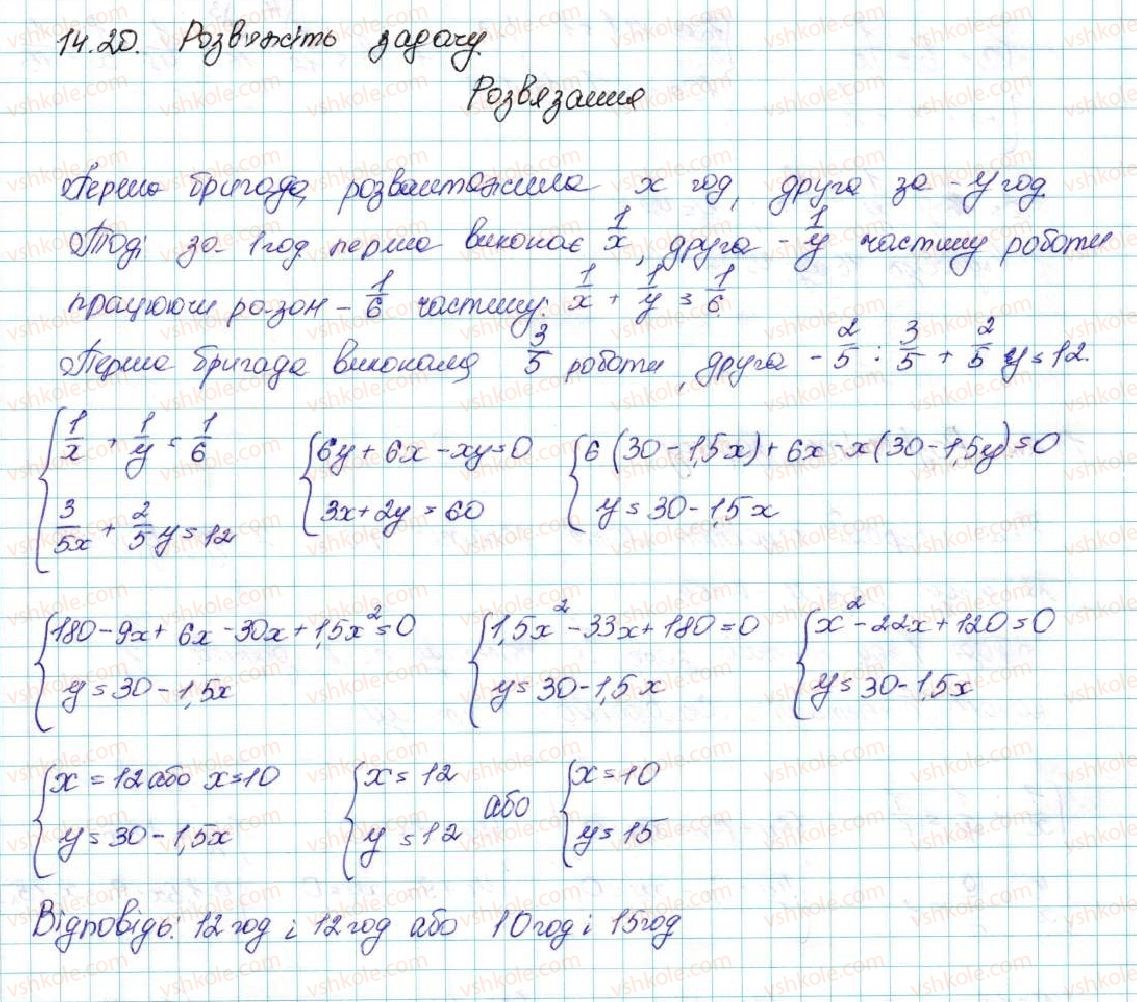 14.20. Розвяжіть задачу.
Розвязання
Перша бригада розвантажила x год, друга за - y год.
Тоді за 1 год перша виконає 1/x, друга - 1/y частину роботи
працюючи разом - 1/6 частину: 1/x + 1/y = 1/6
Перша бригада виконала 3/5 роботи, друга - 2/5 : 3/5 + 2/5 y = 12.
{ 1/x + 1/y = 1/6 { 6y + 6x - xy = 0 { 6(30 - 1,5x) + 6x - x(30 - 1,5y) = 0
3/5x + 2/5 y = 12 3x + 2y = 60 y = 30 - 1,5x
{ 180 - 9x + 6x - 30x + 1,5x² = 0 { 1,5x² - 33x + 180 = 0 { x² - 22x + 120 = 0
y = 30 - 1,5x y = 30 - 1,5x y = 30 - 1,5x
{ x = 12 або x = 10 { x = 12 або { x = 10
y = 30 - 1,5x y = 12 y = 15
Відповідь: 12 год і 12 год або 10 год і 15 год